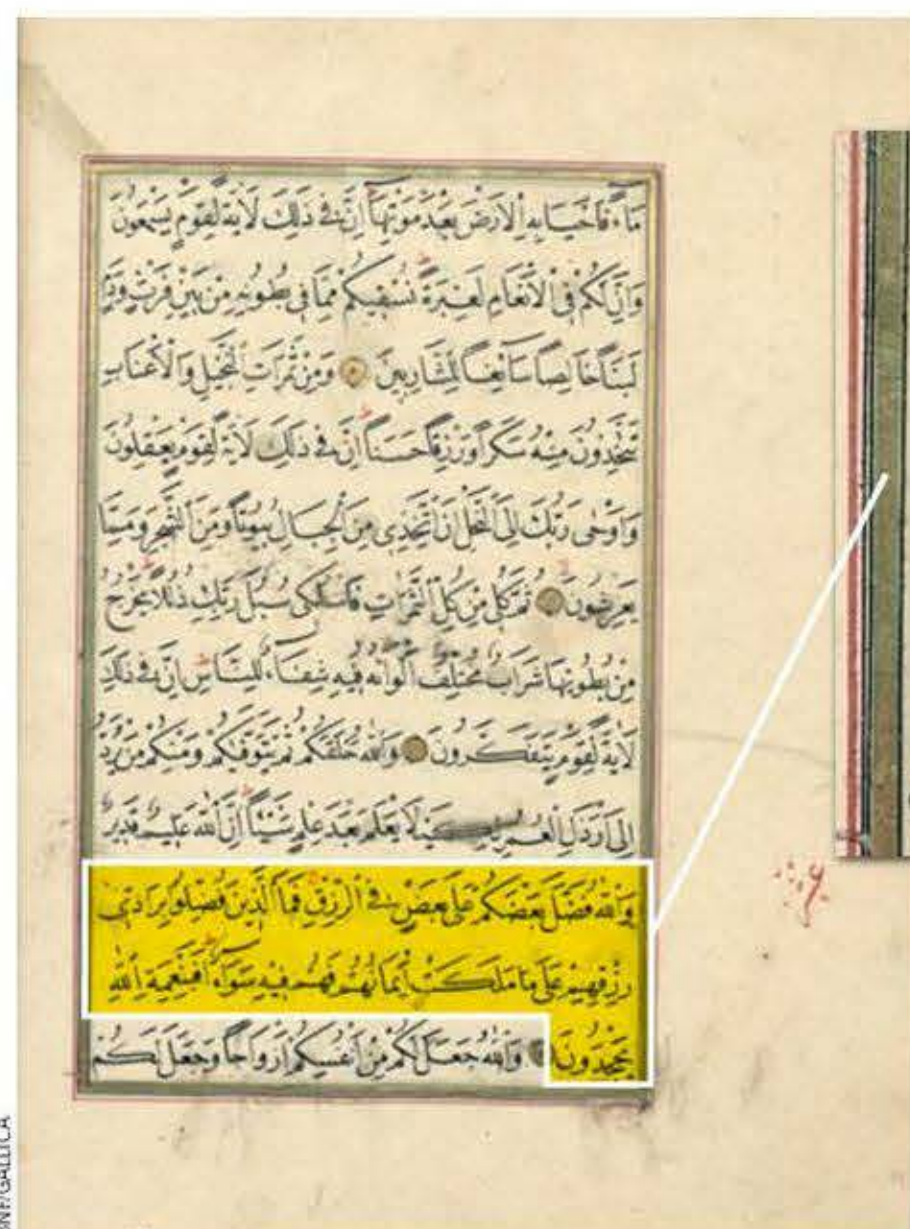 مَآءً فَاَحْيَا بِهِ الْاَرْضَ بَعْدَ مَوْتِهَا اِنَّ فِى ذٰلِكَ لَاٰيَةً لِقَوْمٍ يَسْمَعُونَ
وَاِنَّ لَكُمْ فِى الْاَنْعَامِ لَعِبْرَةً نُسْقِيكُمْ مِمَّا فِى بُطُونِهِ مِنْ بَيْنِ فَرْثٍ وَدَمٍ
لَبَنًا خَالِصًا سَائِغًا لِلشَّارِبِينَ وَمِنْ ثَمَرَاتِ النَّخِيلِ وَالْاَعْنَابِ
تَتَّخِذُونَ مِنْهُ سَكَرًا وَرِزْقًا حَسَنًا اِنَّ فِى ذٰلِكَ لَاٰيَةً لِقَوْمٍ يَعْقِلُونَ
وَاَوْحٰى رَبُّكَ اِلَى النَّحْلِ اَنِ اتَّخِذِى مِنَ الْجِبَالِ بُيُوتًا وَمِنَ الشَّجَرِ وَمِمَّا
يَعْرِشُونَ ثُمَّ كُلِى مِنْ كُلِّ الثَّمَرَاتِ فَاسْلُكِى سُبُلَ رَبِّكِ ذُلُلًا يَخْرُجُ
مِنْ بُطُونِهَا شَرَابٌ مُخْتَلِفٌ اَلْوَانُهُ فِيهِ شِفَآءٌ لِلنَّاسِ اِنَّ فِى ذٰلِكَ
لَاٰيَةً لِقَوْمٍ يَتَفَكَّرُونَ وَاللّٰهُ خَلَقَكُمْ ثُمَّ يَتَوَفّٰيكُمْ وَمِنْكُمْ مَنْ يُرَدُّ
اِلٰى اَرْذَلِ الْعُمُرِ لِكَىْ لَا يَعْلَمَ بَعْدَ عِلْمٍ شَيْئًا اِنَّ اللّٰهَ عَلِيمٌ قَدِيرٌ
وَاللّٰهُ فَضَّلَ بَعْضَكُمْ عَلٰى بَعْضٍ فِى الرِّزْقِ فَمَا الَّذِينَ فُضِّلُوا بِرَآدِّى
رِزْقِهِمْ عَلٰى مَا مَلَكَتْ اَيْمَانُهُمْ فَهُمْ فِيهِ سَوَآءٌ اَفَبِنِعْمَةِ اللّٰهِ
يَجْحَدُونَ وَاللّٰهُ جَعَلَ لَكُمْ مِنْ اَنْفُسِكُمْ اَزْوَاجًا وَجَعَلَ لَكُمْ
BNF/GALLICA